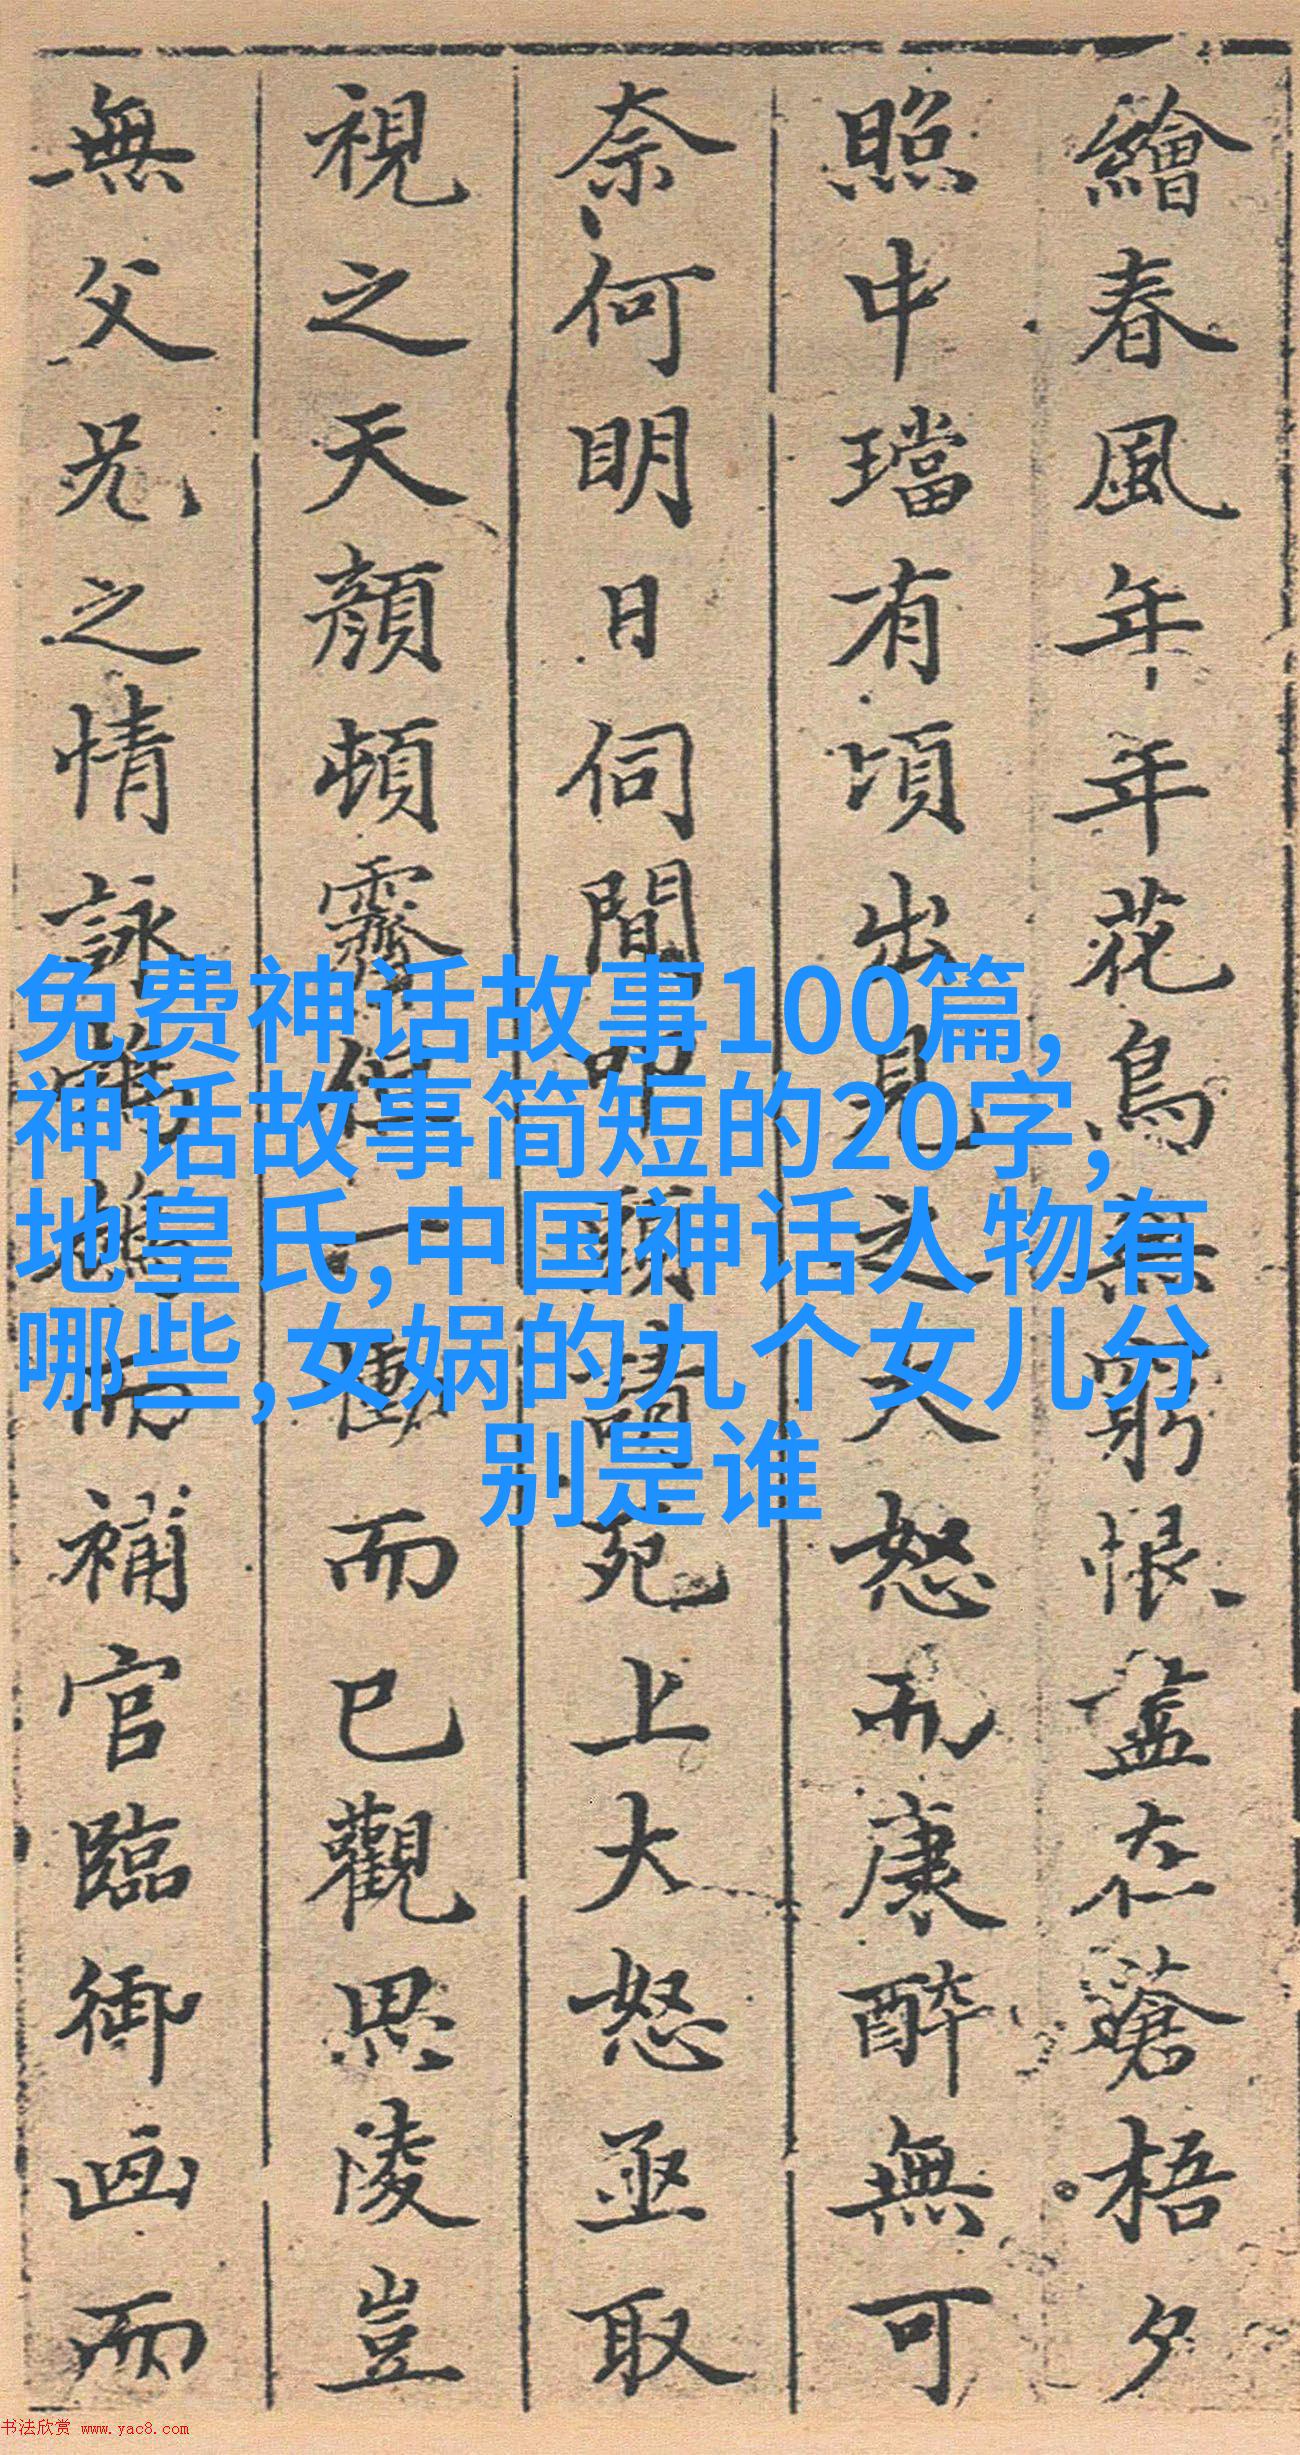 繪春風年年花鳥無窮恨盡在蒼梧夕
照中璫有頃出見之大怒而康醉無可
奈何明日伺間叩頭請死上大怒亟取
視之天顏頓霽但一慟而已觀思陵豈
無父兄之情詠鶺鴒而補官臨御画而
免费神话故事100篇,
神话故事简短的20字,
地皇氏,中国神话人物有
哪些,女娲的九个女儿分
别是谁
书法欣赏 www.yac8.com